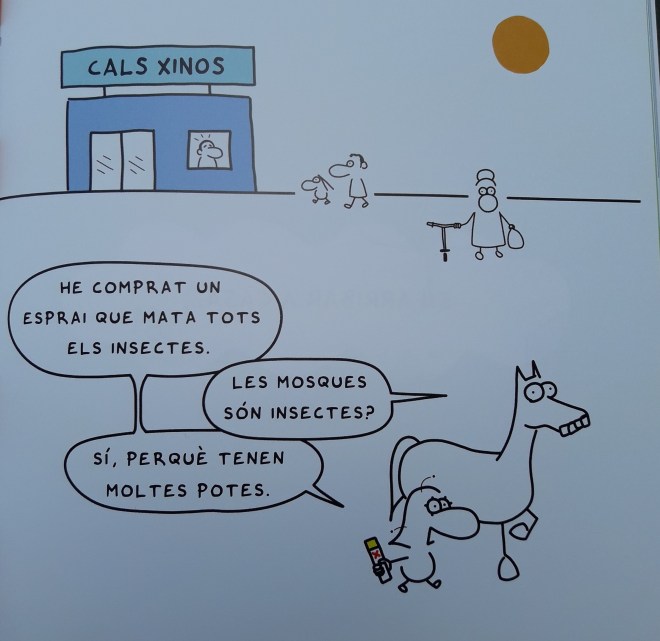 CALS XINOS
HE COMPRAT UN
ESPRAI QUE MATA TOTS
ELS INSECTES.
LES MOSQUES
SÓN INSECTES?
SÍ, PERQUÈ TENEN
MOLTES POTES.